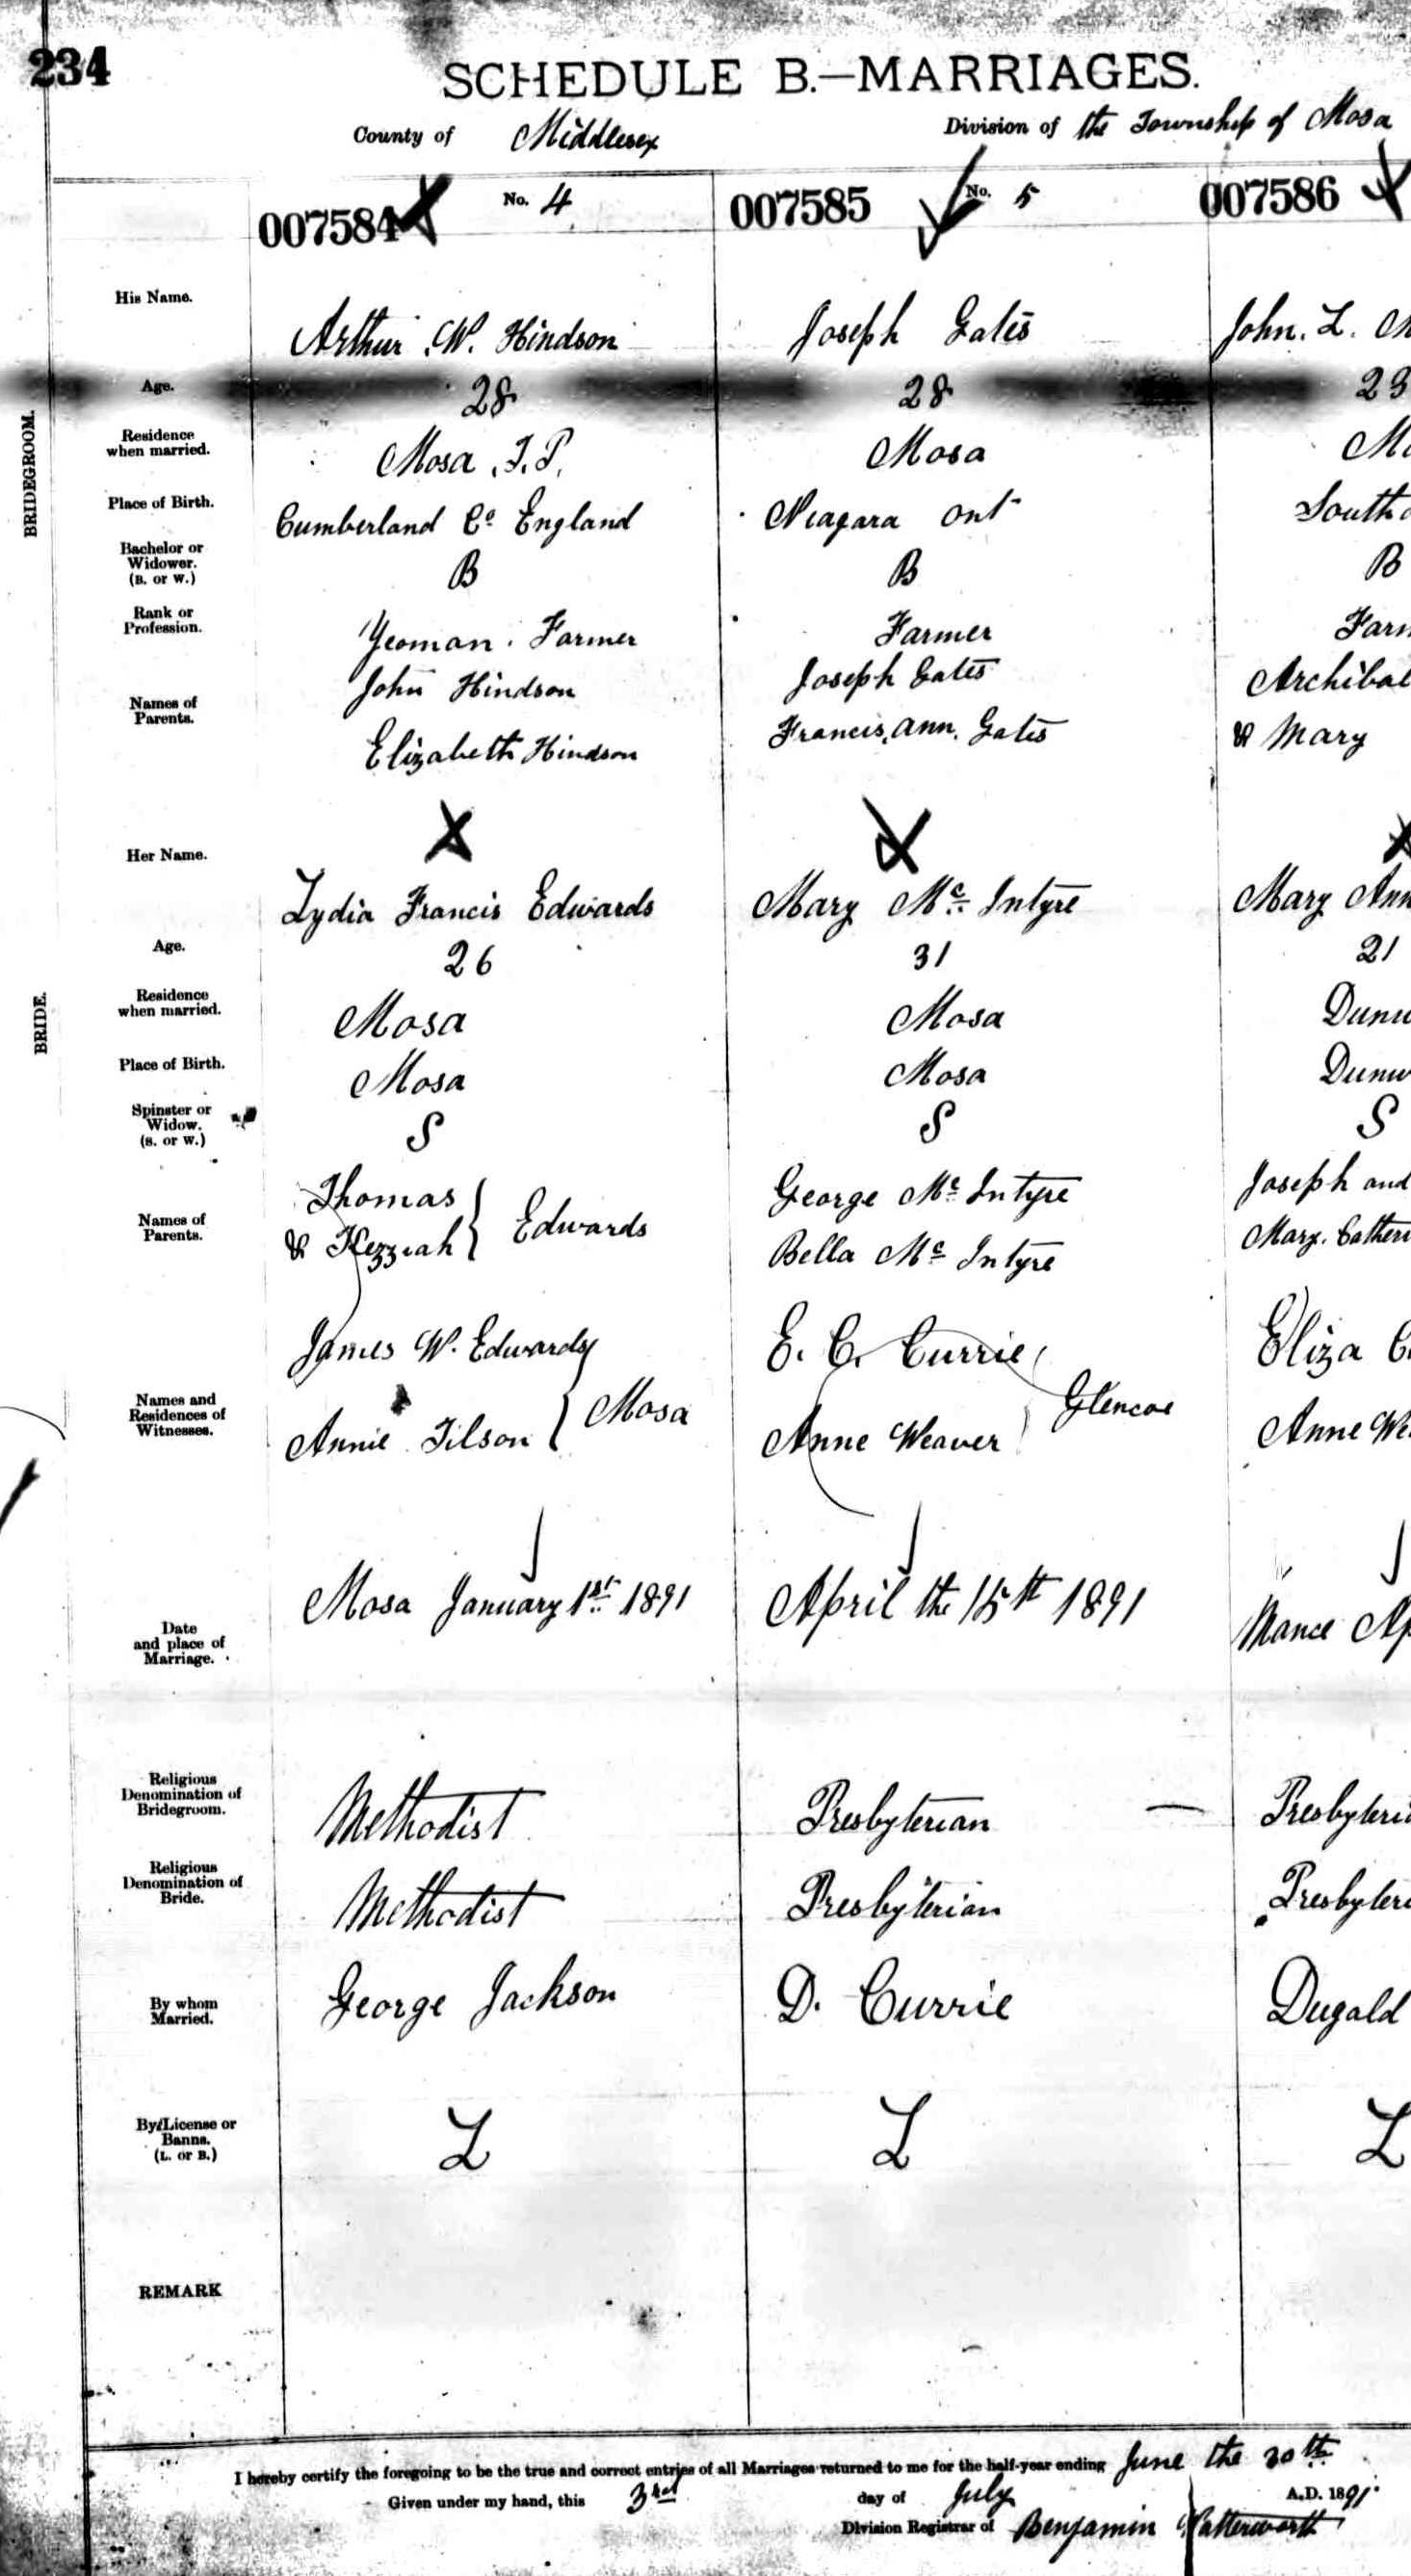 234
SCHEDULE B.—MARRIAGES.
County of Middlesex Division of the Township of Mosa
007584 No. 4 007585 No. 5 007586
BRIDEGROOM.
His Name. Arthur . W. Hindson Joseph Gates John. L.
Age. 28 28 23
Residence when married. Mosa . T. P. Mosa
Place of Birth. Cumberland Co England Niagara Ont
Bachelor or Widower. (B. or W.) B B B
Rank or Profession. Yeoman . Farmer Farmer Farm
Names of Parents. John Hindson Joseph Gates Archibal
Elizabeth Hindson Francis. Ann. Gates & Mary
BRIDE.
Her Name. Lydia Francis Edwards Mary Mc Intyre Mary Ann
Age. 26 31 21
Residence when married. Mosa Mosa Dunw
Place of Birth. Mosa Mosa Dunw
Spinster or Widow. (S. or W.) S S S
Names of Parents. Thomas & Kezziah } Edwards George Mc Intyre Joseph and
Bella Mc Intyre Mary. Catheri
Names and Residences of Witnesses. James W. Edwards E. C. Currie Eliza C.
Annie Tilson } Mosa Anne Weaver } Glencoe Anne We
Date and place of Marriage. Mosa January 1st 1891 April the 15th 1891 Ap
Religious Denomination of Bridegroom. Methodist Presbyterian Presbyteri
Religious Denomination of Bride. Methodist Presbyterian Presbyteri
By whom Married. George Jackson D. Currie Dugald
By License or Banns. (L. or B.) L L L
REMARK
I hereby certify the foregoing to be the true and correct entries of all Marriages returned to me for the half-year ending June the 30th
Given under my hand, this 3rd day of July A.D. 1891.
Division Registrar of Benjamin Watterworth